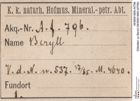 K. k. naturh. Hofmus. Mineral.-petr. Abt.
Akq.-Nr. A. f. 796.
Name Beryll
V. d. N. nr. 537. 17/85. M. 4640.
Fundort